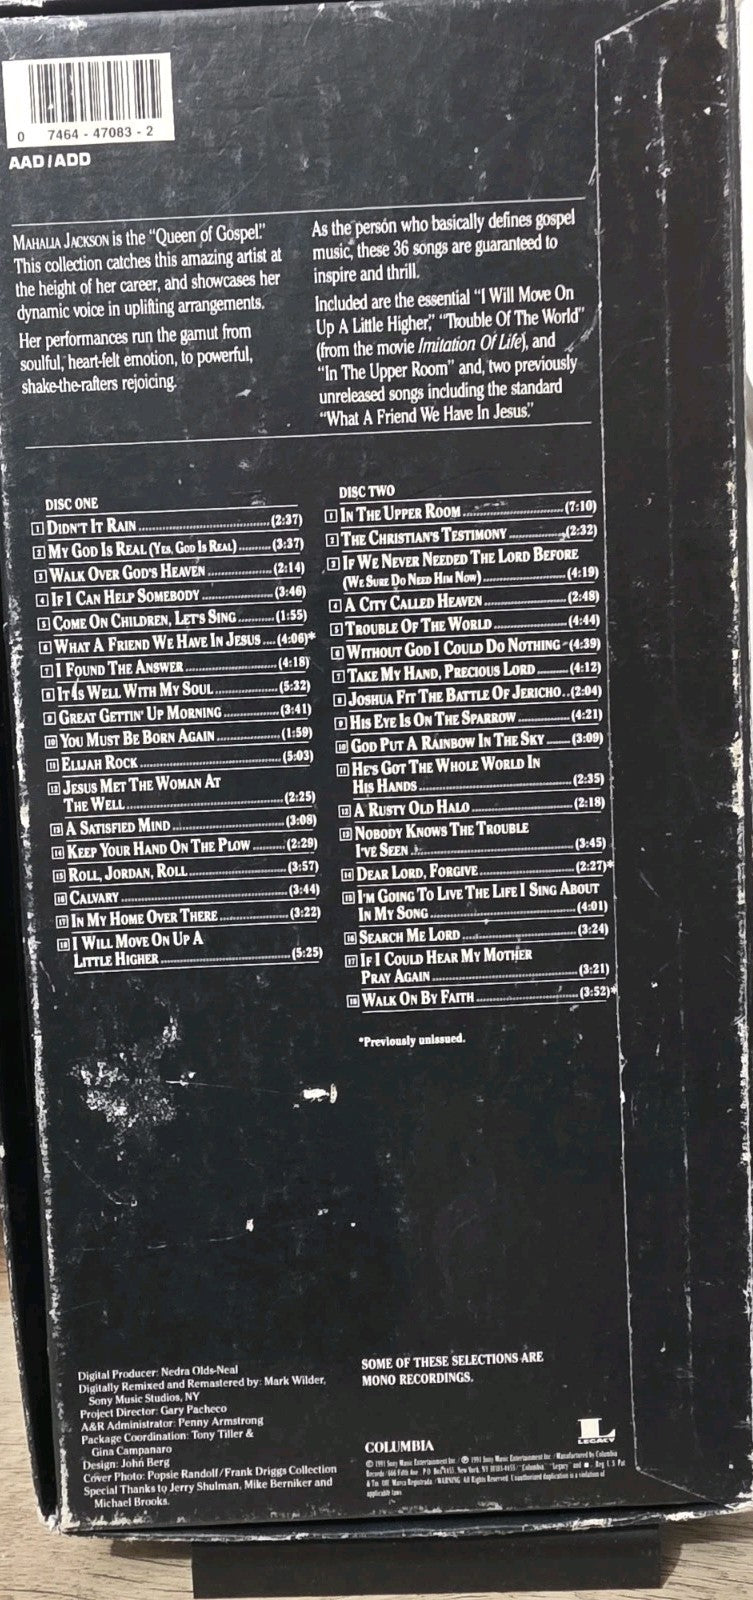 0 7464 - 47083 - 2
AAD/ADD
MAHALIA JACKSON is the "Queen of Gospel."
This collection catches this amazing artist at
the height of her career, and showcases her
dynamic voice in uplifting arrangements.
Her performances run the gamut from
soulful, heart-felt emotion, to powerful,
shake-the-rafters rejoicing.
As the person who basically defines gospel
music, these 36 songs are guaranteed to
inspire and thrill.
Included are the essential "I Will Move On
Up A Little Higher," "Trouble Of The World"
(from the movie Imitation Of Life), and
"In The Upper Room" and, two previously
unreleased songs including the standard
"What A Friend We Have In Jesus."
DISC ONE
1 DIDN'T IT RAIN (2:37)
2 MY GOD IS REAL (YES, GOD IS REAL) (3:37)
3 WALK OVER GOD'S HEAVEN (2:14)
4 IF I CAN HELP SOMEBODY (3:46)
5 COME ON CHILDREN, LET'S SING (1:55)
6 WHAT A FRIEND WE HAVE IN JESUS (4:06)*
7 I FOUND THE ANSWER (4:18)
8 IT IS WELL WITH MY SOUL (5:32)
9 GREAT GETTIN' UP MORNING (3:41)
10 YOU MUST BE BORN AGAIN (1:59)
11 ELIJAH ROCK (5:03)
12 JESUS MET THE WOMAN AT
THE WELL (2:25)
13 A SATISFIED MIND (3:08)
14 KEEP YOUR HAND ON THE PLOW (2:29)
15 ROLL, JORDAN, ROLL (3:57)
16 CALVARY (3:44)
17 IN MY HOME OVER THERE (3:22)
18 I WILL MOVE ON UP A
LITTLE HIGHER (5:25)
DISC TWO
1 IN THE UPPER ROOM (7:10)
2 THE CHRISTIAN'S TESTIMONY (2:32)
3 IF WE NEVER NEEDED THE LORD BEFORE
(WE SURE DO NEED HIM NOW) (4:19)
4 A CITY CALLED HEAVEN (2:48)
5 TROUBLE OF THE WORLD (4:44)
6 WITHOUT GOD I COULD DO NOTHING (4:39)
7 TAKE MY HAND, PRECIOUS LORD (4:12)
8 JOSHUA FIT THE BATTLE OF JERICHO (2:04)
9 HIS EYE IS ON THE SPARROW (4:21)
10 GOD PUT A RAINBOW IN THE SKY (3:09)
11 HE'S GOT THE WHOLE WORLD IN
HIS HANDS (2:35)
12 A RUSTY OLD HALO (2:18)
13 NOBODY KNOWS THE TROUBLE
I'VE SEEN (3:45)
14 DEAR LORD, FORGIVE (2:27)*
15 I'M GOING TO LIVE THE LIFE I SING ABOUT
IN MY SONG (4:01)
16 SEARCH ME LORD (3:24)
17 IF I COULD HEAR MY MOTHER
PRAY AGAIN (3:21)
18 WALK ON BY FAITH (3:52)*
*Previously unissued.
Digital Producer: Nedra Olds-Neal
Digitally Remixed and Remastered by: Mark Wilder,
Sony Music Studios, NY
Project Director: Gary Pacheco
A&R Administrator: Penny Armstrong
Package Coordination: Tony Tiller &
Gina Campanaro
Design: John Berg
Cover Photo: Popsie Randolf/Frank Driggs Collection
Special Thanks to Jerry Shulman, Mike Berniker and
Michael Brooks.
SOME OF THESE SELECTIONS ARE
MONO RECORDINGS.
L
LEGACY
COLUMBIA
© 1991 Sony Music Entertainment Inc. / ℗ 1991 Sony Music Entertainment Inc. / Manufactured by Columbia
Records / 666 Fifth Ave. P.O. Box 4455, New York, NY 10101-4455 / "Columbia," "Legacy" and Reg. U.S. Pat.
& Tm. Off. Marca Registrada. / WARNING: All Rights Reserved. Unauthorized duplication is a violation of
applicable laws.